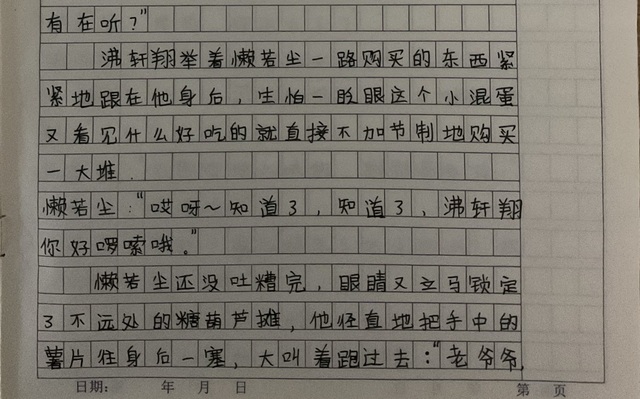 有在听？”
沸轩翔举着懒若尘一路购买的东西紧
紧地跟在他身后，生怕一眨眼这个小混蛋
又看见什么好吃的就直接不加节制地购买
一大堆.
懒若尘：“哎呀～知道3，知道3，沸轩翔
你好啰嗦哦。”
懒若尘还没吐糟完，眼睛又立马锁定
3不远处的糖葫芦摊，他径直地把手中的
薯片往身后一塞，大叫着跑过去：“老爷爷，
日期：　年　月　日　第　页